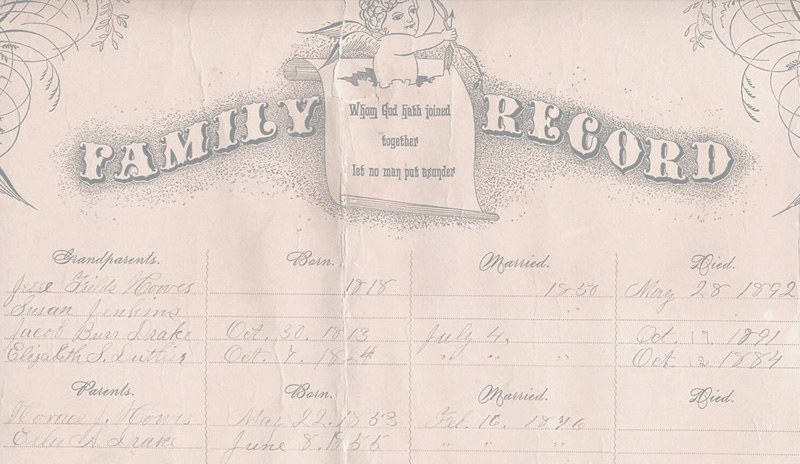 FAMILY RECORD
Whom God hath joined
together
let no man put asunder
Grandparents. Born. Married. Died.
Jesse Howes 1818 1850 May 28 1892
Susan Jenkins " "
Jacob Burr Drake Oct. 30. 1813 July 4. Oct. 17. 1891
Elizabeth S. Oct. 7. " " " Oct. 12. 1884
Parents. Born. Married. Died.
Horace J. Howes May 22. 1853 Feb. 16. 1876
Ella A Drake June 8. 1855 " " "